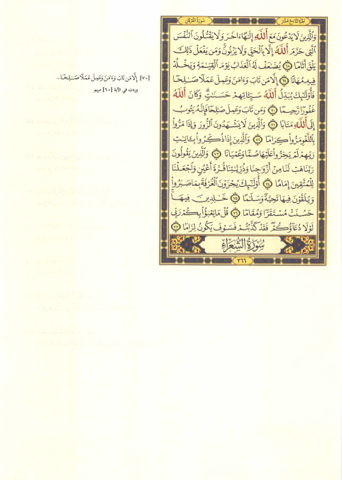 الجزء التاسع عشر
سورة الفرقان
وَالَّذِينَ لَا يَدْعُونَ مَعَ اللَّهِ إِلَٰهًا ءَاخَرَ وَلَا يَقْتُلُونَ النَّفْسَ
الَّتِي حَرَّمَ اللَّهُ إِلَّا بِالْحَقِّ وَلَا يَزْنُونَ وَمَن يَفْعَلْ ذَٰلِكَ
يَلْقَ أَثَامًا ٦٨ يُضَٰعَفْ لَهُ الْعَذَابُ يَوْمَ الْقِيَٰمَةِ وَيَخْلُدْ
فِيهِ مُهَانًا ٦٩ إِلَّا مَن تَابَ وَءَامَنَ وَعَمِلَ عَمَلًا صَٰلِحًا
فَأُولَٰئِكَ يُبَدِّلُ اللَّهُ سَيِّئَاتِهِمْ حَسَنَٰتٍ وَكَانَ اللَّهُ
غَفُورًا رَّحِيمًا ٧٠ وَمَن تَابَ وَعَمِلَ صَٰلِحًا فَإِنَّهُ يَتُوبُ
إِلَى اللَّهِ مَتَابًا ٧١ وَالَّذِينَ لَا يَشْهَدُونَ الزُّورَ وَإِذَا مَرُّوا
بِاللَّغْوِ مَرُّوا كِرَامًا ٧٢ وَالَّذِينَ إِذَا ذُكِّرُوا بِـَٔايَٰتِ
رَبِّهِمْ لَمْ يَخِرُّوا عَلَيْهَا صُمًّا وَعُمْيَانًا ٧٣ وَالَّذِينَ يَقُولُونَ
رَبَّنَا هَبْ لَنَا مِنْ أَزْوَٰجِنَا وَذُرِّيَّٰتِنَا قُرَّةَ أَعْيُنٍ وَاجْعَلْنَا
لِلْمُتَّقِينَ إِمَامًا ٧٤ أُولَٰئِكَ يُجْزَوْنَ الْغُرْفَةَ بِمَا صَبَرُوا
وَيُلَقَّوْنَ فِيهَا تَحِيَّةً وَسَلَٰمًا ٧٥ خَٰلِدِينَ فِيهَا
حَسُنَتْ مُسْتَقَرًّا وَمُقَامًا ٧٦ قُلْ مَا يَعْبَؤُا بِكُمْ رَبِّي
لَوْلَا دُعَاؤُكُمْ فَقَدْ كَذَّبْتُمْ فَسَوْفَ يَكُونُ لِزَامًا ٧٧
سُورَةُ الشُّعَرَاءِ
٣٦٦
(٧٠) إِلَّا مَن تَابَ وَءَامَنَ وَعَمِلَ عَمَلًا صَٰلِحًا...
مريم [٦٠]